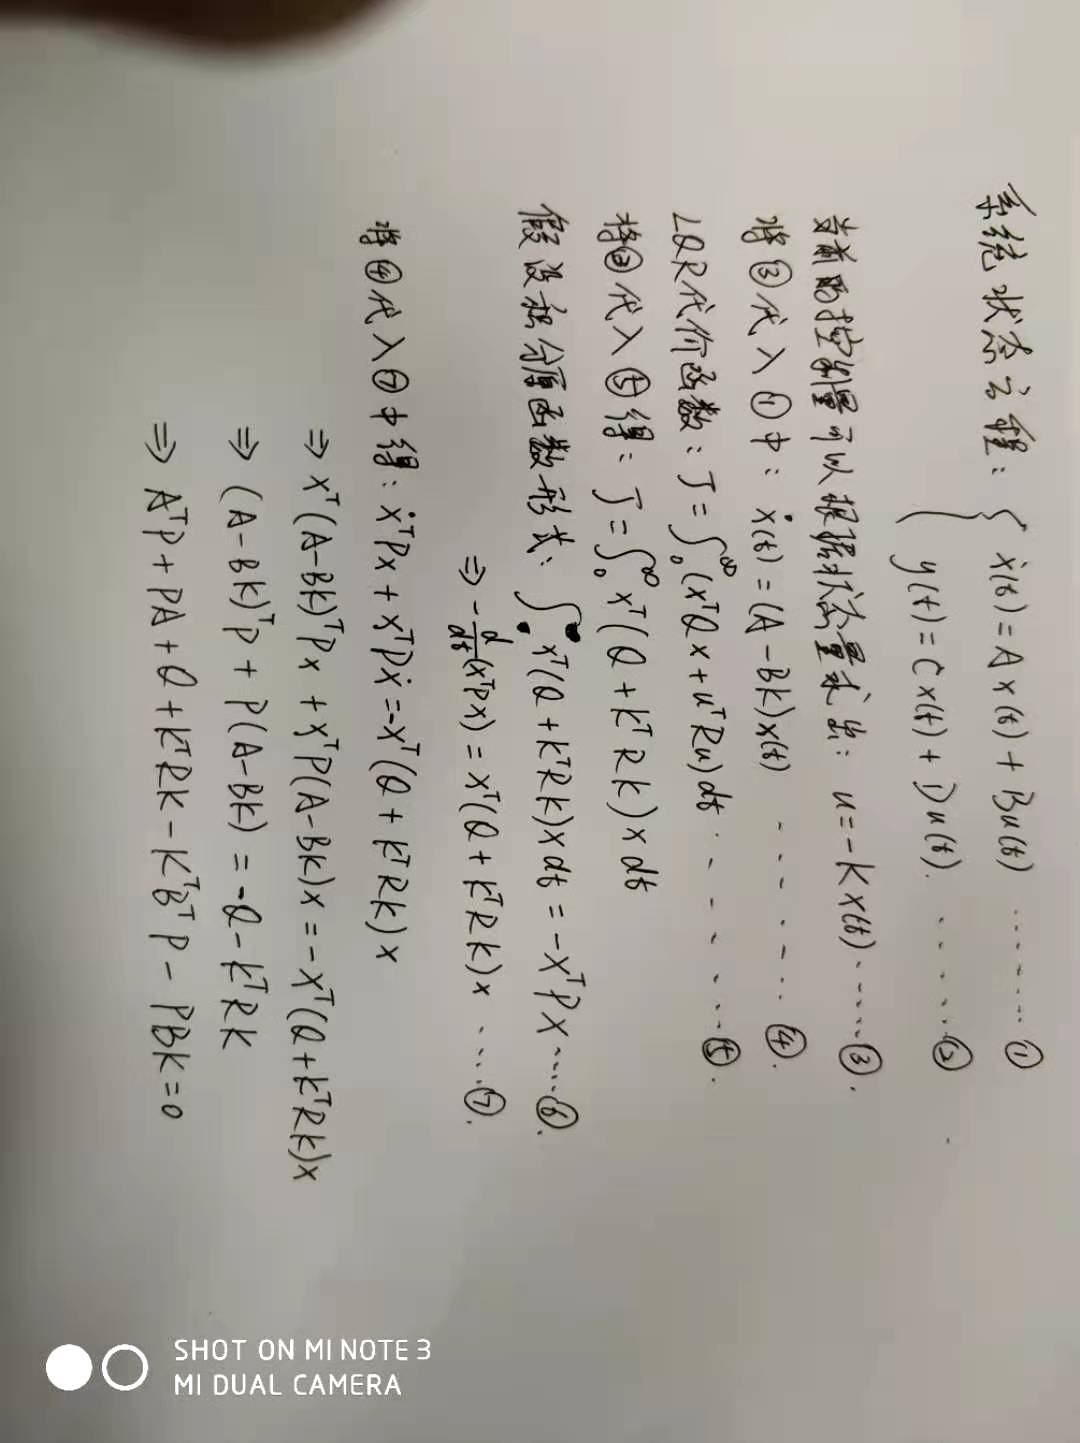 系统状态方程: { ẋ(t) = Ax(t) + Bu(t) ······· ①
y(t) = Cx(t) + Du(t). ······ ②
当前的控制量可以根据状态量求出: u = -Kx(t) ······ ③.
将③代入①中: ẋ(t) = (A - BK)x(t) ······· ④.
LQR代价函数: J = ∫₀^∞ (xᵀQx + uᵀRu)dt ······ ⑤.
将③代入⑤得: J = ∫₀^∞ xᵀ(Q + KᵀRK)x dt
假设积分原函数形式: ∫ xᵀ(Q + KᵀRK)x dt = -xᵀPx ····· ⑥.
⇒ -d/dt(xᵀPx) = xᵀ(Q + KᵀRK)x ···· ⑦.
将④代入⑦中得: ẋᵀPx + xᵀPẋ = -xᵀ(Q + KᵀRK)x
⇒ xᵀ(A-BK)ᵀPx + xᵀP(A-BK)x = -xᵀ(Q+KᵀRK)x
⇒ (A-BK)ᵀP + P(A-BK) = -Q - KᵀRK
⇒ AᵀP + PA + Q + KᵀRK - KᵀBᵀP - PBK = 0
SHOT ON MI NOTE 3
MI DUAL CAMERA